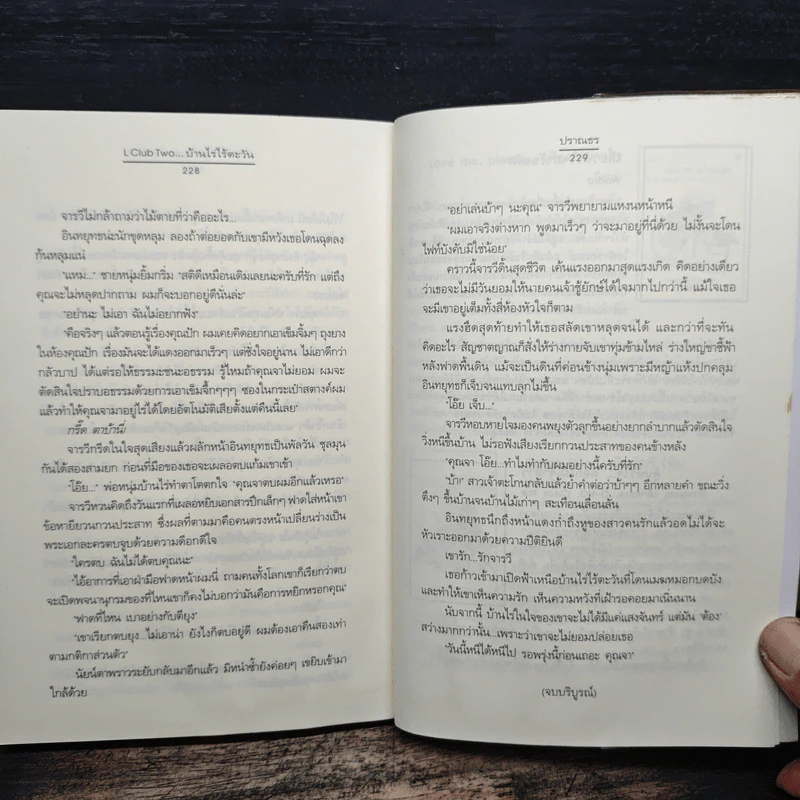 L Club Two... บ้านไร่ไร้ตะวัน
228
จารวีไม่กล้าถามว่าไม้ตายที่ว่าคืออะไร...
อินทยุทธน่ะนักขุดหลุม ลองถ้าต่อยอดกับเขามีหวังเธอโดนฉุดลง
ก้นหลุมแน่
"แหม..." ชายหนุ่มยิ้มกริ่ม "สถิติเหมือนเดิมเลยนะครับที่รัก แต่ถึง
คุณจะไม่หลุดปากถาม ผมก็จะบอกอยู่ดีนั่นล่ะ"
"อย่านะ ไม่เอา ฉันไม่อยากฟัง"
"คือจริงๆ แล้วตอนรู้เรื่องคุณปัก ผมเคยคิดอยากเอาเข็มจิ้มๆ ถุงยาง
ในห้องคุณปัก เรื่องมันจะได้แดงออกมาเร็วๆ แต่ชั่งใจอยู่นาน ไม่เอาดีกว่า
กลัวบาป ได้แต่รอให้ธรรมะชนะอธรรม รู้ไหมถ้าคุณจาไม่ยอม ผมจะ
ตัดสินใจปราบอธรรมด้วยการเอาเข็มจึ้กๆๆๆ ซองในกระเป๋าสตางค์ผม
แล้วทำให้คุณจามาอยู่ไร่ได้โดยอัตโนมัติเสียตั้งแต่คืนนี้เลย"
กรี๊ด ตาบ้านี่
จารวีกรีดในใจสุดเสียงแล้วผลักหน้าอินทยุทธเป็นพัลวัน ชุลมุน
กันได้สองสามยก ก่อนที่มือของเธอจะเผลอตบแก้มเขาเข้า
"โอ๊ย..." พ่อหนุ่มบ้านไร่ทำตาโตตกใจ "คุณจาตบผมอีกแล้วเหรอ"
จารวีหวนคิดถึงวันแรกที่เผลอหยิบเอกสารปึกเล็กๆ ฟาดใส่หน้าเขา
ข้อหายียวนกวนประสาท ซึ่งผลที่ตามมาคือคนตรงหน้าเปลี่ยนร่างเป็น
พระเอกละครตบจูบด้วยความดีอกดีใจ
"ใครตบ ฉันไม่ได้ตบคุณนะ"
"ไอ้อาการที่เอาฝ่ามือฟาดหน้าผมนี่ ถามคนทั้งโลกเขาก็เรียกว่าตบ
จะเปิดพจนานุกรมของที่ไหนเขาก็คงไม่บอกว่ามันคือการหยิกหรอกคุณ"
"ฟาดที่ไหน เบาอย่างกับตียุง"
"เขาเรียกตบยุง...ไม่เอาน่า ยังไงก็ตบอยู่ดี ผมต้องเอาคืนสองเท่า
ตามกติกาส่วนตัว"
นัยน์ตาพราวระยับกลับมาอีกแล้ว มิหนำซ้ำยังค่อยๆ เขยิบเข้ามา
ใกล้ด้วย
ปราณธร
229
"อย่าเล่นบ้าๆ นะคุณ" จารวีพยายามแหงนหน้าหนี
"ผมเอาจริงต่างหาก พูดมาเร็วๆ ว่าจะมาอยู่ที่นี่ด้วย ไม่งั้นจะโดน
ไฟท์บังคับมิใช่น้อย"
คราวนี้จารวีดิ้นสุดชีวิต เค้นแรงออกมาสุดแรงเกิด คิดอย่างเดียว
ว่าเธอจะไม่มีวันยอมให้นายคนเจ้าชู้ยักษ์ได้ใจมากไปกว่านี้ แม้ใจเธอ
จะมีเขาอยู่เต็มทั้งสี่ห้องหัวใจก็ตาม
แรงฮึดสุดท้ายทำให้เธอสลัดเขาหลุดจนได้ และกว่าที่จะทัน
คิดอะไร สัญชาตญาณก็สั่งให้ร่างกายจับเขาทุ่มข้ามไหล่ ร่างใหญ่ขาชี้ฟ้า
หลังฟาดพื้นดิน แม้จะเป็นดินที่ค่อนข้างนุ่มเพราะมีหญ้าแห้งปกคลุม
อินทยุทธก็เจ็บจนแทบลุกไม่ขึ้น
"โอ๊ย เจ็บ..."
จารวีหอบหายใจมองคนพยุงตัวลุกขึ้นอย่างยากลำบากแล้วตัดสินใจ
วิ่งหนีขึ้นบ้าน ไม่รอฟังเสียงเรียกกวนประสาทของคนข้างหลัง
"คุณจา โอ๊ย...ทำไมทำกับผมอย่างนี้ครับที่รัก"
"บ้า" สาวเจ้าตะโกนกลับแล้วย้ำคำต่อว่าบ้าๆๆ อีกหลายคำ ขณะวิ่ง
ตึงๆ ขึ้นบ้านจนบ้านไม้เก่าๆ สะเทือนเลื่อนลั่น
อินทยุทธนึกถึงหน้าแดงก่ำถึงหูของสาวคนรักแล้วอดไม่ได้จะ
หัวเราะออกมาด้วยความปีติยินดี
เขารัก...รักจารวี
เธอก้าวเข้ามาเปิดฟ้าเหนือบ้านไร่ไร้ตะวันที่โดนเมฆหมอกบดบัง
และทำให้เขาเห็นความรัก เห็นความหวังที่เฝ้ารอคอยมาเนิ่นนาน
นับจากนี้ บ้านไร่ในใจของเขาจะไม่ได้มีแค่แสงจันทร์ แต่มัน 'ต้อง'
สว่างมากกว่านั้น...เพราะว่าเขาจะไม่ยอมปล่อยเธอ
"วันนี้หนีได้หนีไป รอพรุ่งนี้ก่อนเถอะ คุณจา"
(จบบริบูรณ์)